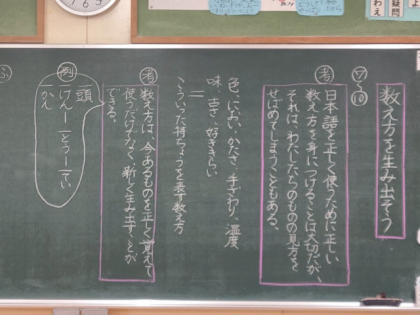 数え方を生み出そう
⑦〜⑩
考
日本語を正しく使うために正しい
数え方を身につけることは大切だが、
それは、わたしたちのものの見方を
せばめてしまうこともある。
色、におい、かたさ、手ざわり、温度
味、古さ、好ききらい
=
こういった持ちょうを表す数え方
考
数え方は、今あるものを正しく覚えて
使うだけでなく、新しく生み出すことが
できる。
例
頭
けんー とうー てい
かん